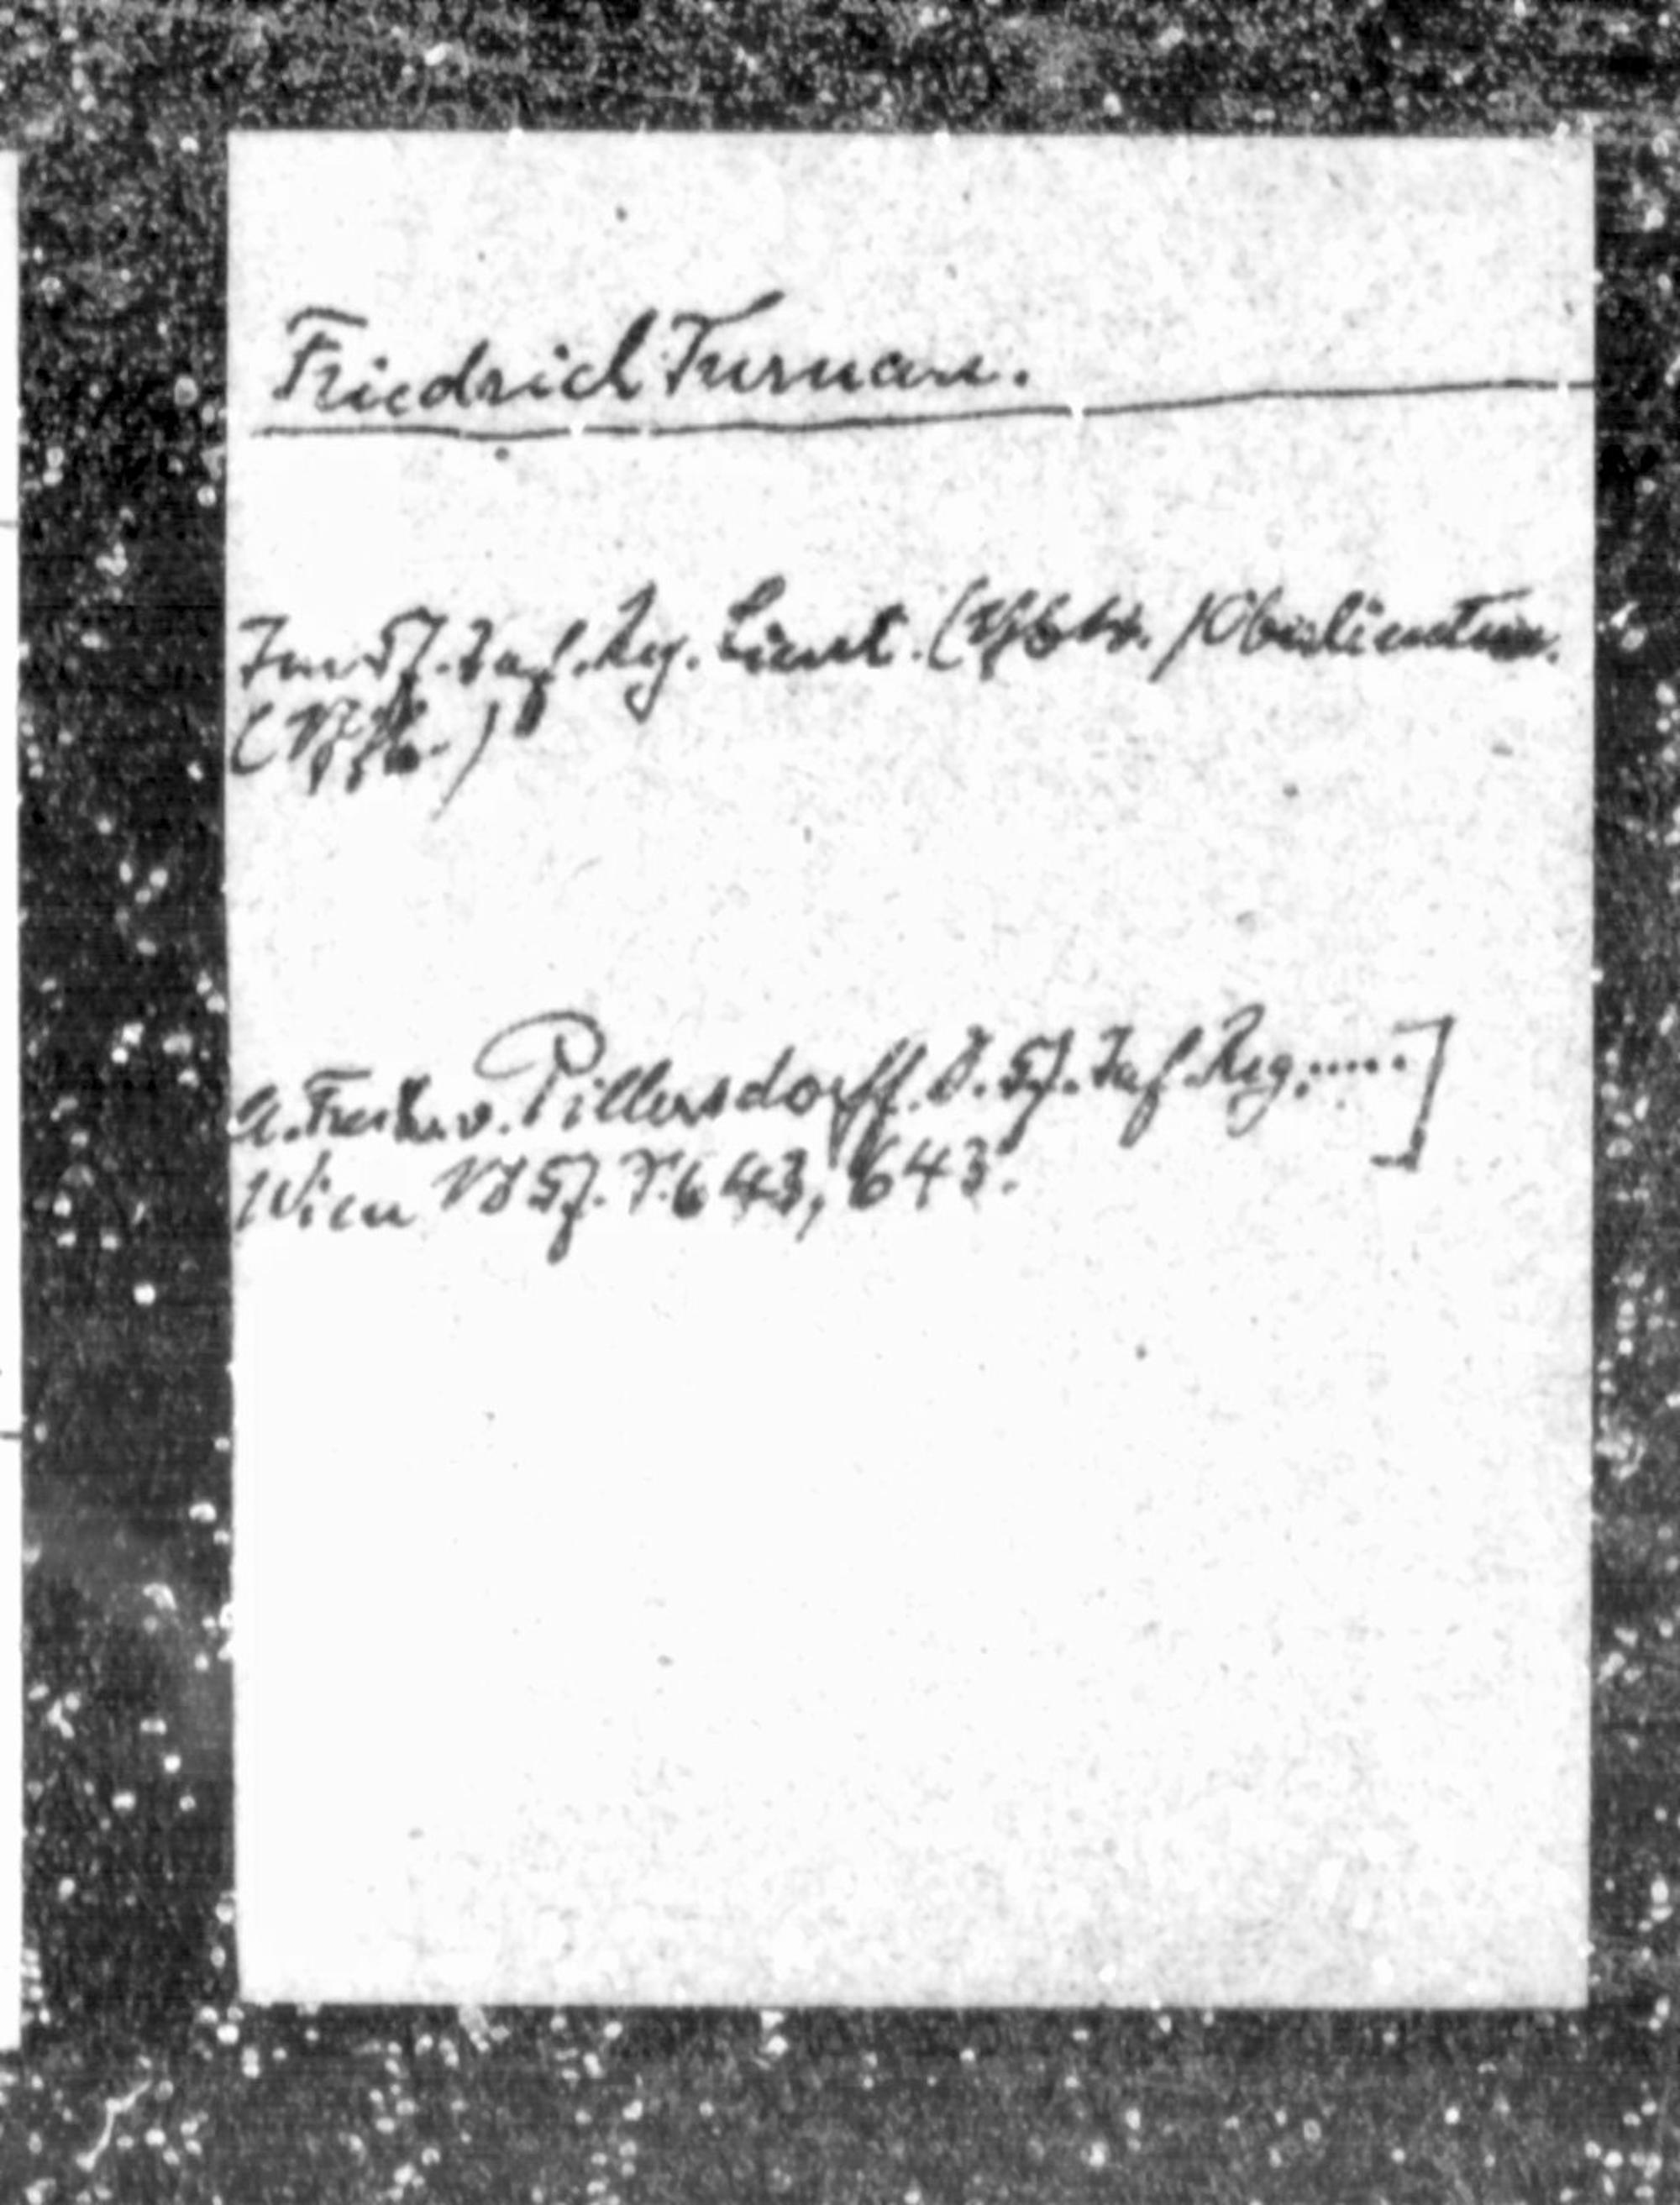 Friedrich Furman.
Im 57. Inf. Reg. Lieut. ( / Oberlieutn.
A. Freihr. v. Pillersdorff. D. 57. Inf. Reg. ..... ]
Wien 1857. S. 643, 643.